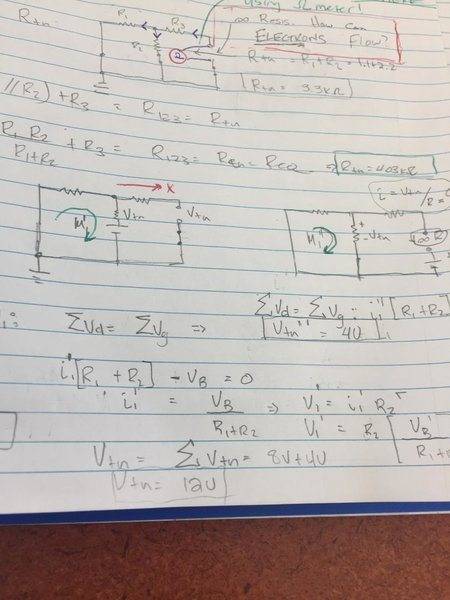 Using Ωmeter!
Rtn
R1
R3
R2
2
∞ Resis. How can
ELECTRONS Flow?
Rtn = R1+R2 = 1.1+2.2
Rtn = 3.3kΩ
//R2) + R3 = R123 = Rtn
R1 R2 / R1+R2 + R3 = R123 = Req ⇒ Rtn = 4.03kΩ
x
i = Vtn/R =
Vtn
Vtn
M1
M1
+
- Vtn
∞ Ω
ΣVd = ΣVg ⇒
ΣVd = ΣVg : i1'' [R1+R2]
Vtn'' = 4V
i1' [R1 + R2] - VB = 0
i1' = VB / R1+R2 ⇒ V1' = i1' R2
V1' = R2 [ VB / R1+
Vtn = ΣVtn = 8V+4V
Vtn = 12V